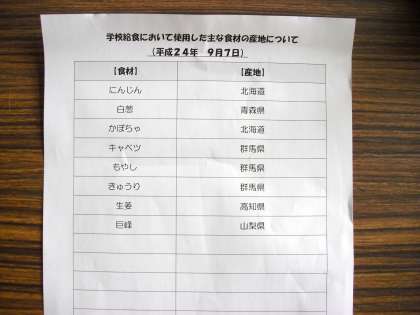 学校給食において使用した主な食材の産地について
（平成２４年　９月７日）
【食材】　【産地】
にんじん　北海道
白葱　青森県
かぼちゃ　北海道
キャベツ　群馬県
もやし　群馬県
きゅうり　群馬県
生姜　高知県
巨峰　山梨県